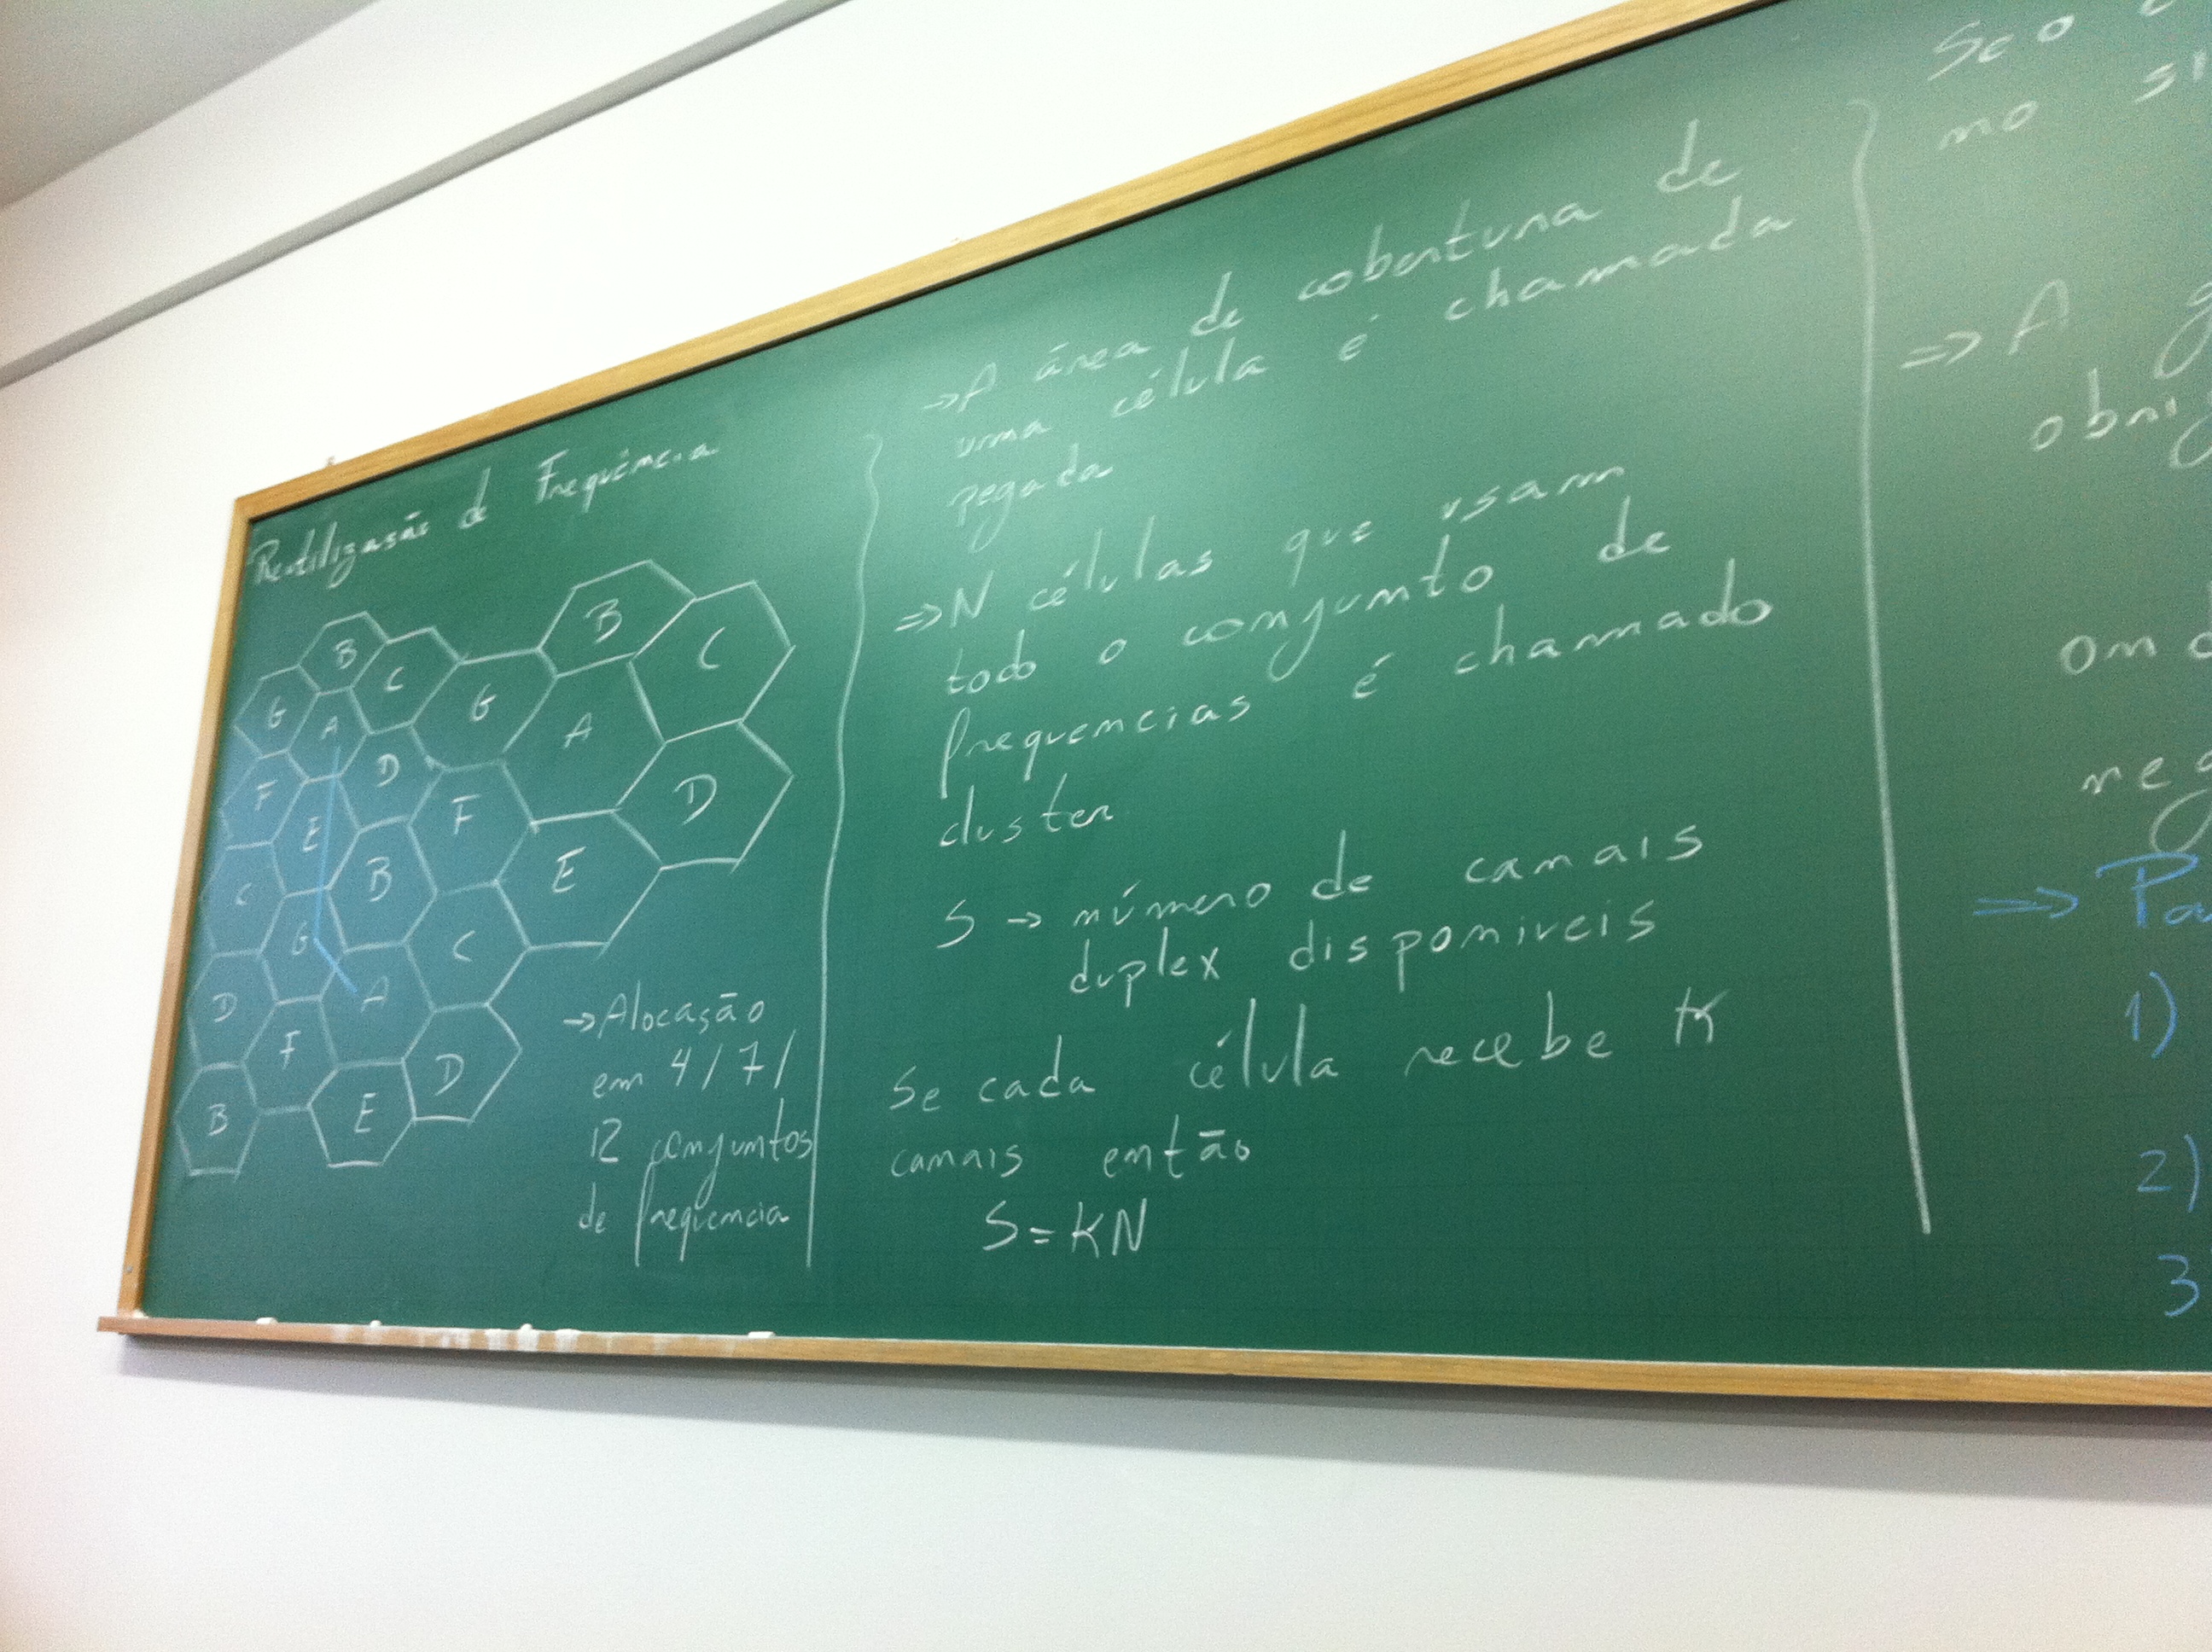 Reutilização de Frequência
B
C
G
A
D
F
E
C
B
G
A
D
F
B
E
D
C
G
B
A
C
D
F
E
→ Alocação
em 4/7/
12 conjuntos
de frequencia
→ A área de cobertura de
uma célula é chamada
pegada
⇒ N células que usam
todo o conjunto de
frequencias é chamado
cluster
S → número de canais
duplex disponiveis
Se cada célula recebe K
canais então
S = KN
Se o
no
⇒ A
⇒
1)
2)
3